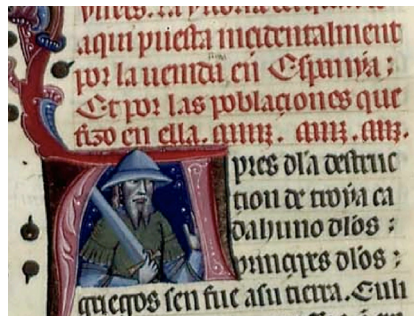 aqui puesta incidentalment
por la uenida en Espanya :
Et por las poblaçiones que
fizo en ella.
Apres dla destruc
tion de troya ca
dahuno dlos :
prinçipes dlos :
griegos sen fue a su tierra.